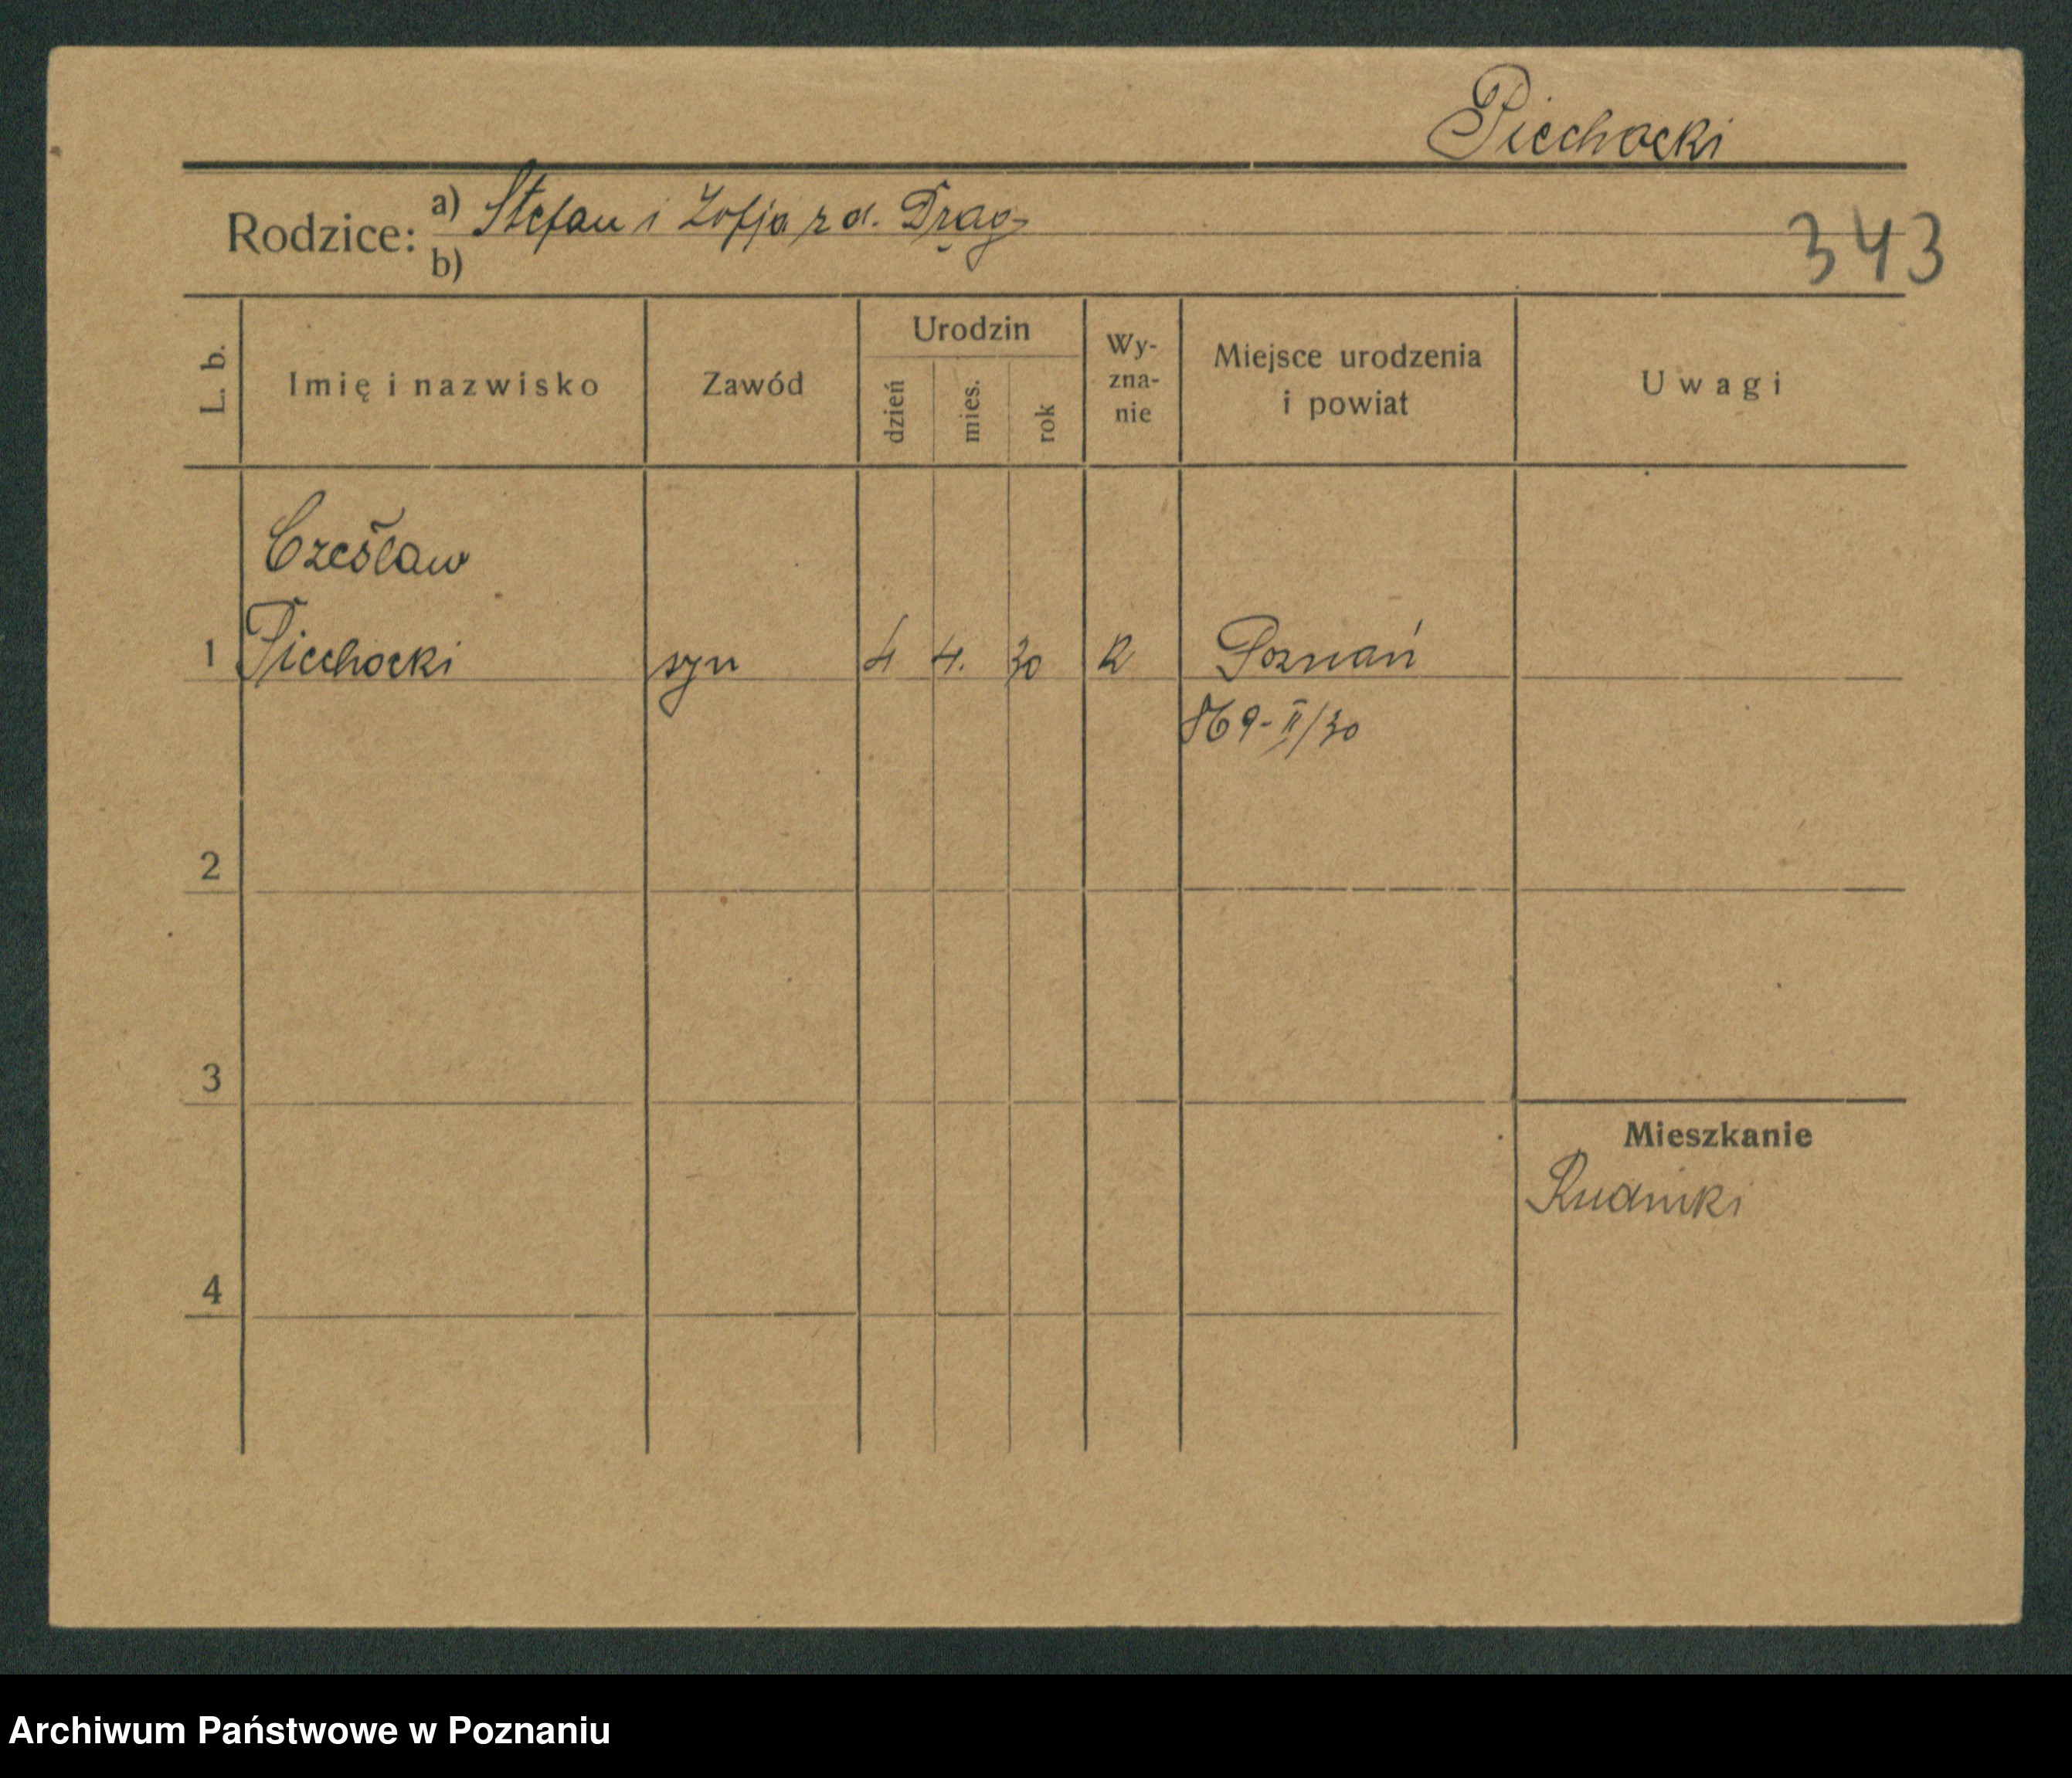 Piechocki
Rodzice: a) Stefan i Zofja z d. Drąg
b)
343
L. b.
Imię i nazwisko
Zawód
Urodzin
dzień
mies.
rok
Wy-
zna-
nie
Miejsce urodzenia
i powiat
Uwagi
Czesław
1 Piechocki syn 4 4. 30 R Poznań
869-II/30
2
3
Mieszkanie
Rudnicki
4
Archiwum Państwowe w Poznaniu